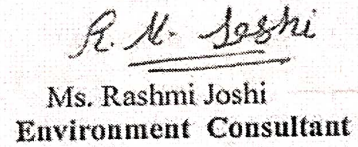 R. M. Joshi
Ms. Rashmi Joshi
Environment Consultant